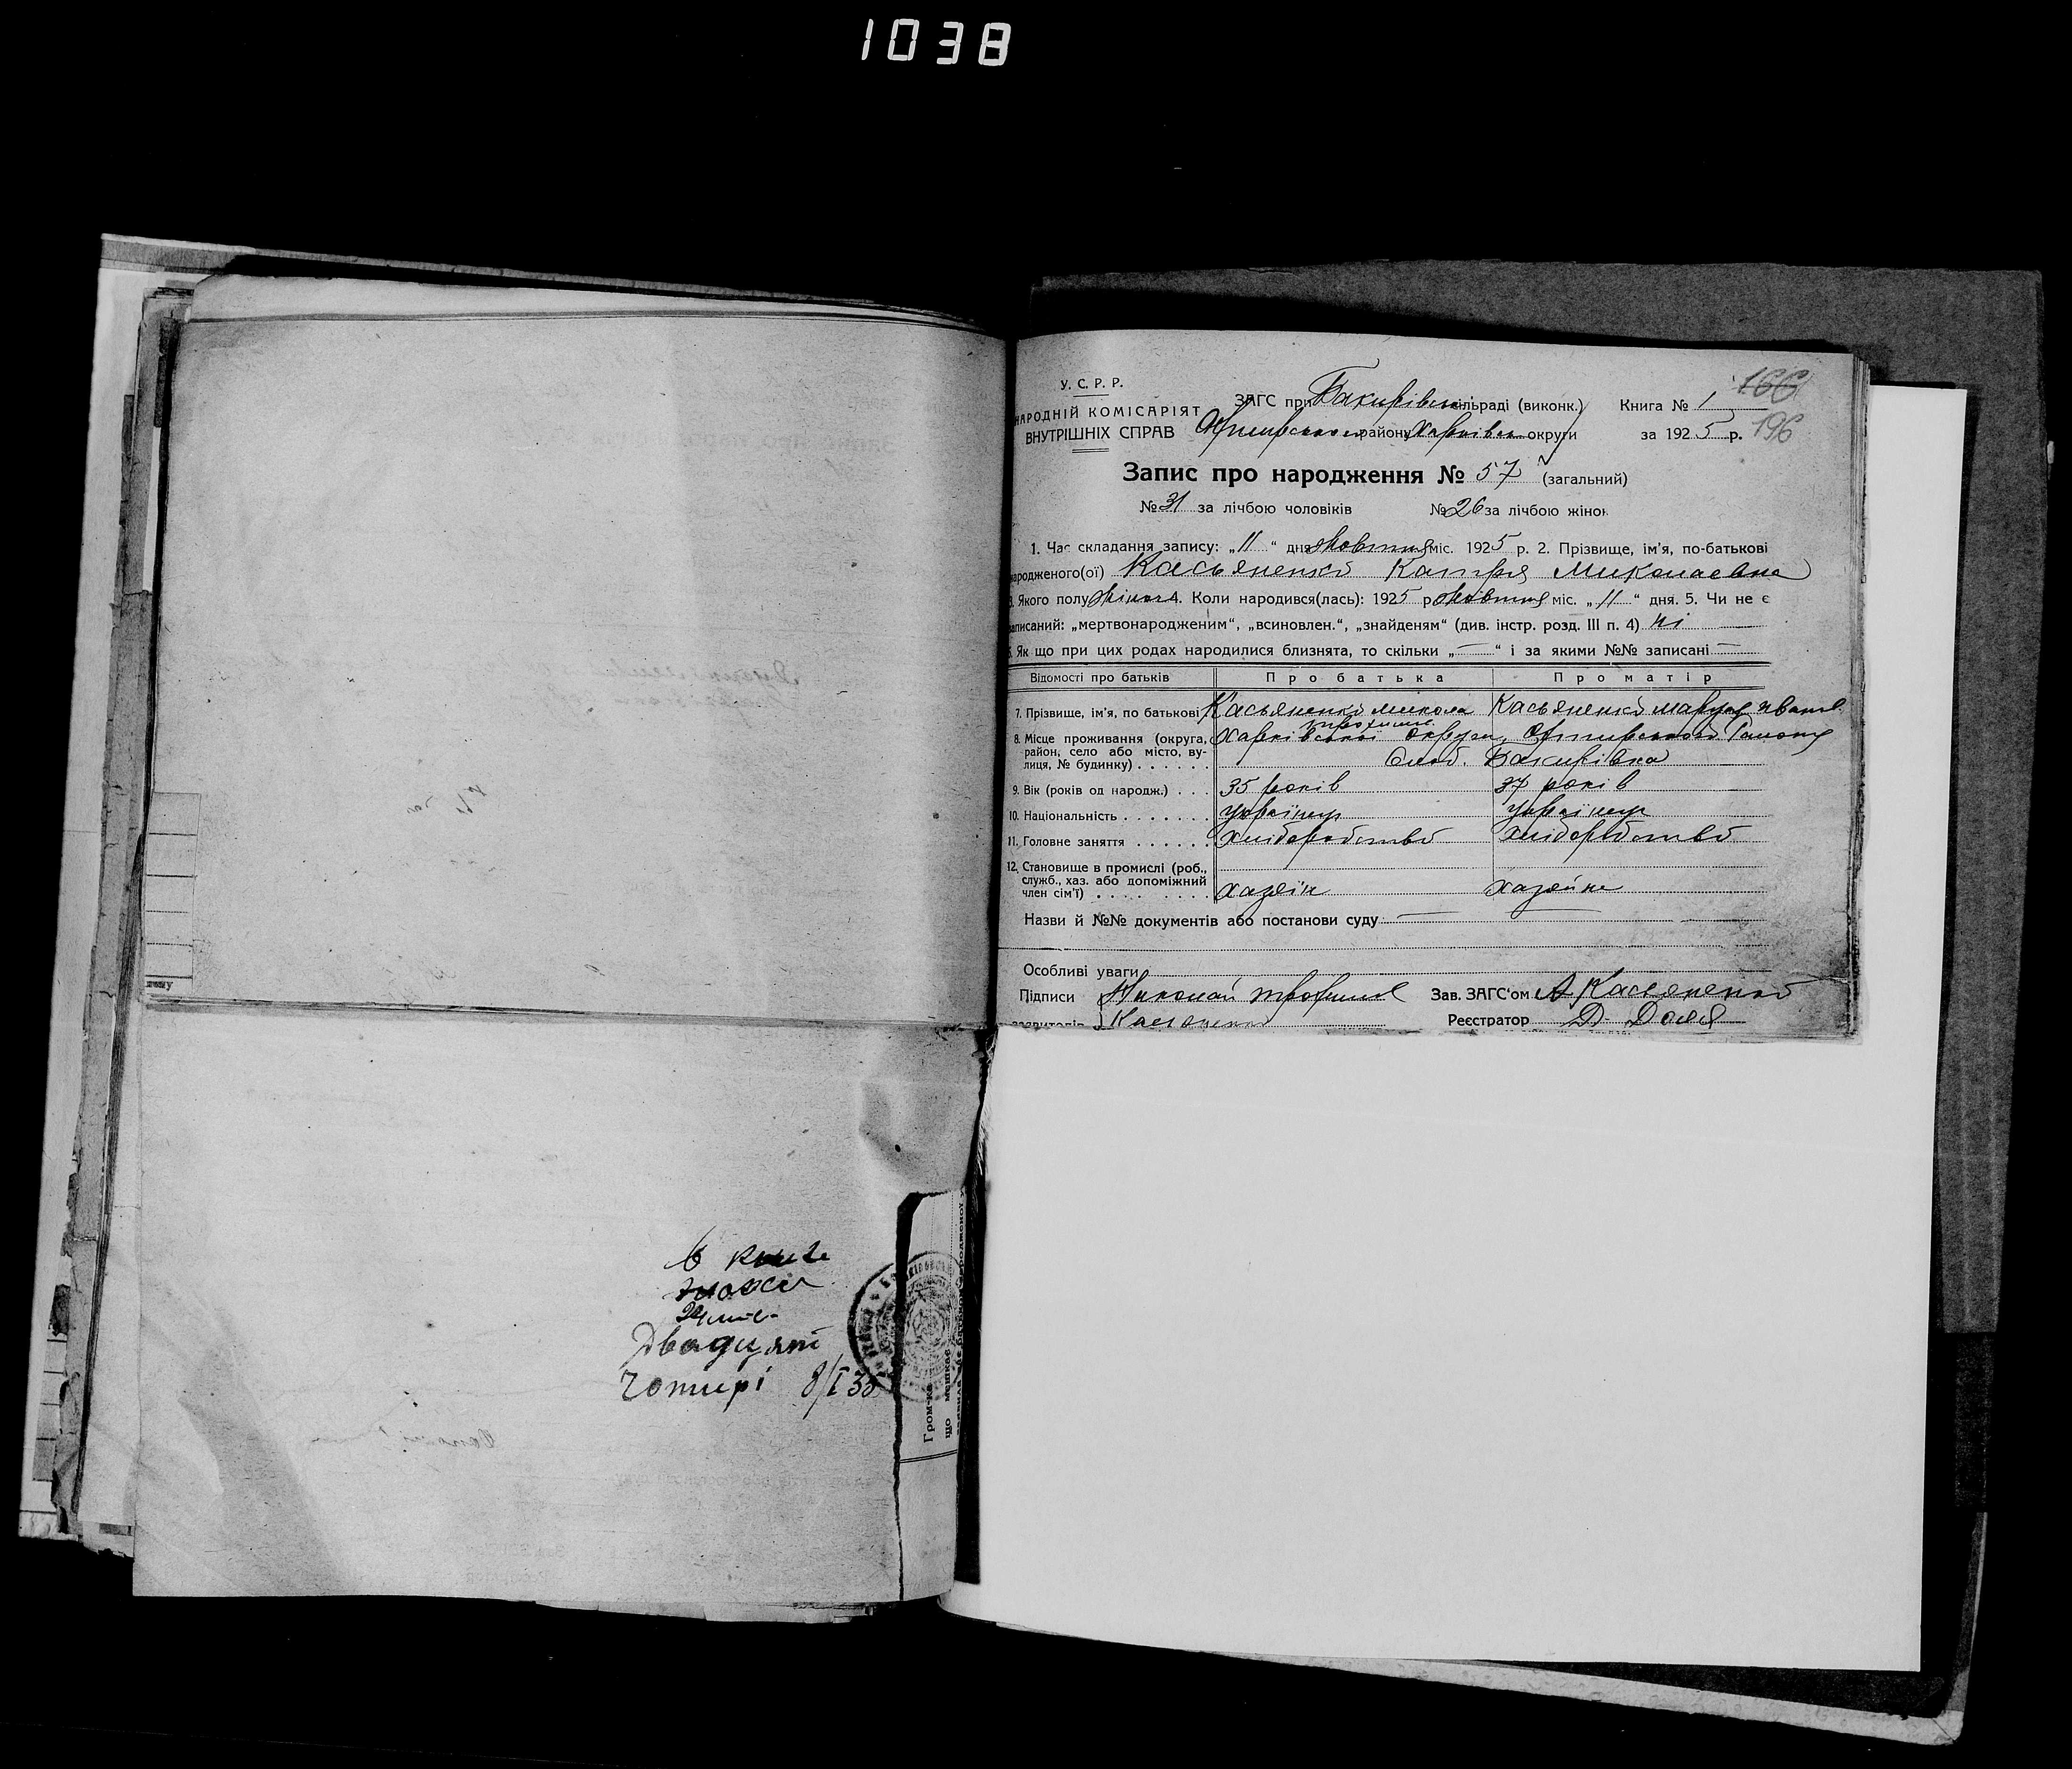 1038
В книзі
24 лист.
Двадцят
Чотирі 8/I 35
Гром-ка
що мешкає
У. С. Р. Р.
НАРОДНІЙ КОМІСАРІЯТ
ВНУТРІШНІХ СПРАВ
ЗАГС при Бакирівськ. сільраді (виконк.) Книга № 1 166
Охтирського району Харківськ. округи за 1925 р. 196
Запис про народження № 57 (загальний)
№ 31 за лічбою чоловіків № 26 за лічбою жінок
1. Час складання запису: „11“ дня жовтня міс. 1925 р. 2. Прізвище, ім'я, по-батькові
народженого(ої) Касьяненко Катря Миколаевна
3. Якого полу жіноч. 4. Коли народився(лась): 1925 р. жовтня міс. „11“ дня. 5. Чи не є
записаний: „мертвонародженим“, „всиновлен.“, „знайденям“ (див. інстр. розд. III п. 4) ні —
6. Як що при цих родах народилися близнята, то скільки „—“ і за якими №№ записані —
Відомості про батьків Про батька Про матір
7. Прізвище, ім'я, по батькові Касьяненко Микола Трохимов. Касьяненко Маруся Иванов.
8. Місце проживання (округа, Харківської округи, Охтирського району
район, село або місто, ву-
лиця, № будинку) . . . . . . Слоб. Бакирівка
9. Вік (років од народж.) . . . 35 років 37 років
10. Національність . . . . . . . українц українц
11. Головне заняття . . . . . . хліборобство хліборобство
12. Становище в промислі (роб.,
служб., хаз. або допоміжний
член сім'ї) . . . . . . . . . хазяін хазяйка
Назви й №№ документів або постанови суду —
Особливі уваги
Підписи Николай Трофимов Зав. ЗАГС'ом А Касьяненко
заявителів Касяненко Реєстратор Д. Доля